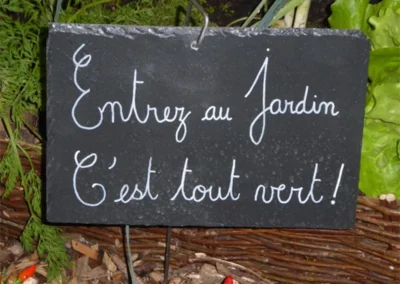 Entrez au Jardin
C'est tout vert!